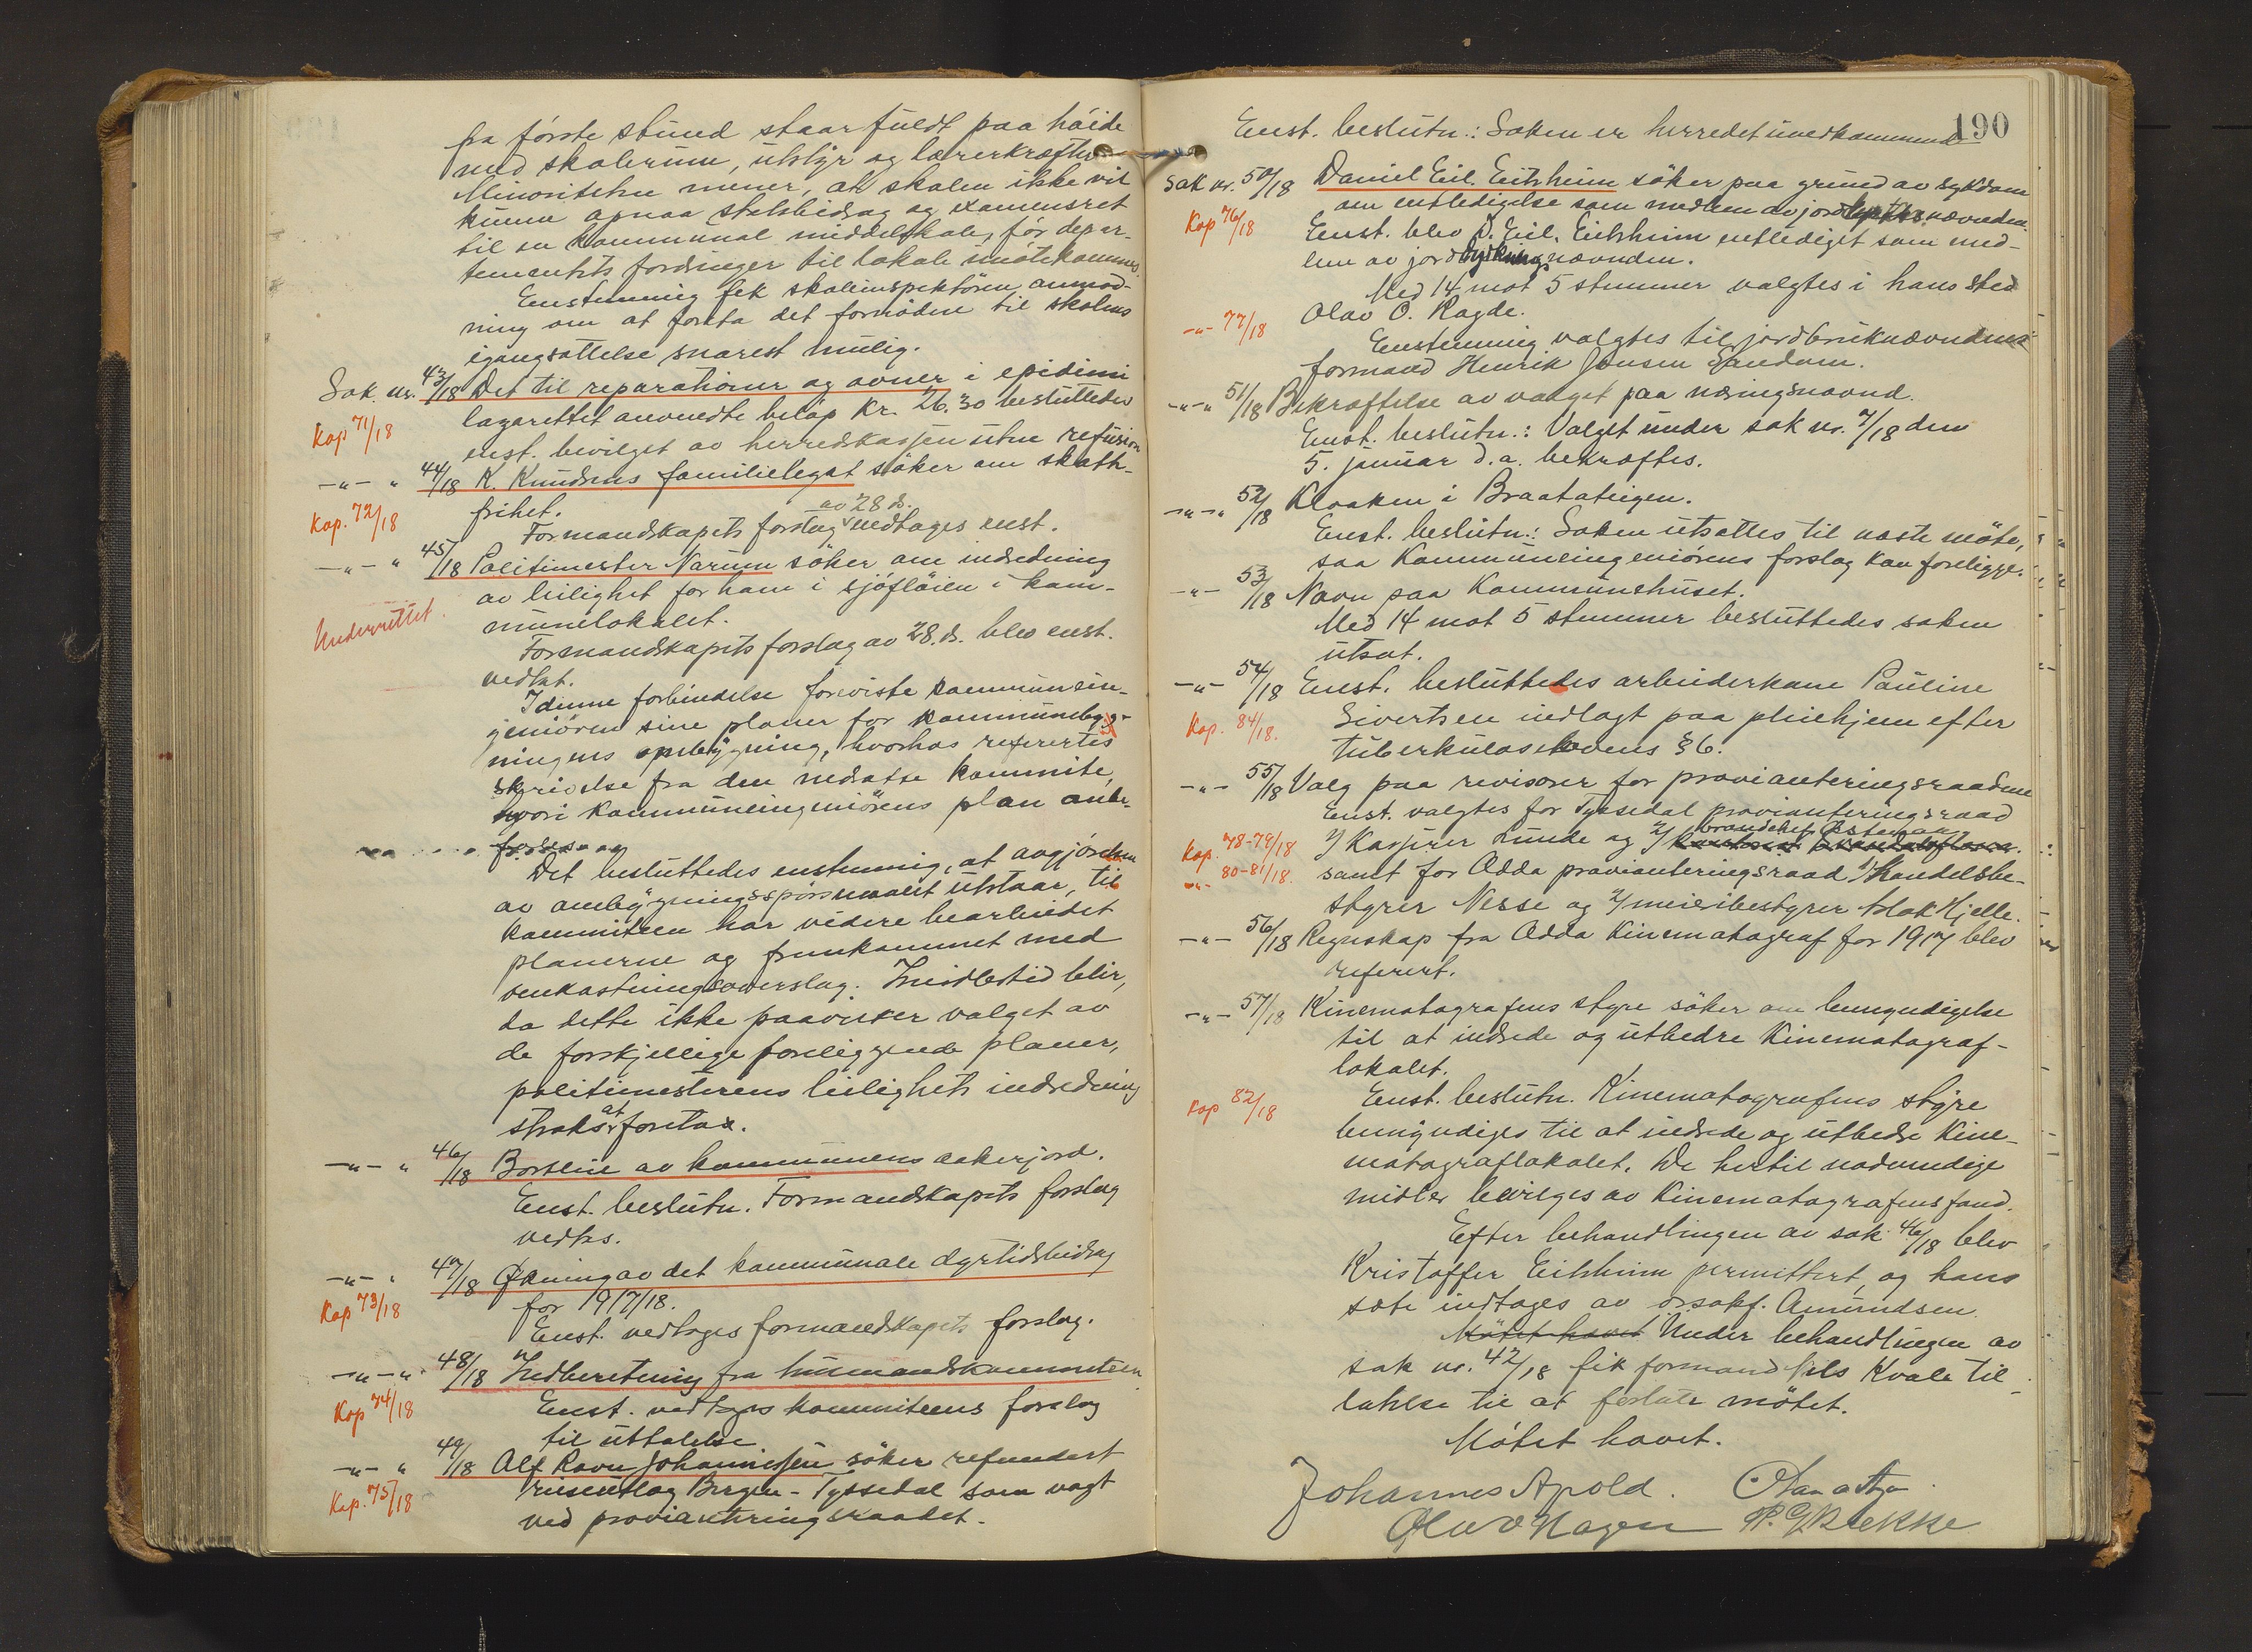 fra første stund staar fuldt paa høide
med skolerum, utstyr og lærerkræfter
Minoriteten mener, at skolen ikke vil
kunne opnaa statsbidrag og examensret
til en kommunal middelskole, før depar-
tementets fordringer til lokale imøtekommes.
Enstemmig fik skoleinspektøren anmod-
ning om at foreta det fornødne til skolens
igangsættelse snarest mulig.
Sak nr. 43/18 Det til reparationer og ovner i epidemi
lazarettet anvendte beløp kr. 26.30 besluttedes
Kop 71/18
enst. bevilget av herredskassen uten refusion
-"- " 44/18 K. Knudsens familielegat søker om skatte-
frihet.
Kop. 72/18
Formandskapets forslag av 28 ds. vedtages enst.
-"- " 45/18 Politimester Narum søker om indredning
av leilighet for ham i sjøfløien i kom-
munelokalet.
Underrettet.
Formandskapets forslag av 28. ds. blev enst.
vedtat.
I denne forbindelse foreviste kommunein-
geniøren sine planer for kommunebyg-
ningens ombygning, hvorhos refirertes
skrivelse fra den nedsatte kommite,
hvori kommuneingeniørens plan anbe-
Det besluttedes enstemmig, at avgjørelsen
av ombygningsspørsmaalet utstaar, til
kommiteen har videre bearbeidet
planerne og fremkommet med
omkostningsoverslag. Imidlertid blir,
da dette ikke paavirker valget av
de forskjellige foreliggende planer,
politimesterens leilighets indredning
straks at foreta.
-"- " 46/18 Bortleie av kommunens akerjord.
Enst. beslutn. Formandskapets forslag
vedtas.
-"- " 47/18 Økning av det kommunale dyrtidsbidrag
for 1917/18.
Kop 73/18
Enst. vedtages formandskapets forslag.
-"- " 48/18 Indberetning fra husmandskommiteen
Kop 74/18
Enst. vedtages kommiteens forslag
til uttalelse
-"- " 49/18 Alf Ravn Johannessen søker refundert
reiseutlæg Bergen - Tyssedal som vagt
Kop. 75/18
ved provianteringsraadet.
190
Enst. beslutn.: Saken er herredet uvedkommende
Sak nr. 50/18 Daniel Eil. Eitrheim søker paa grund av sykdom
om entledigelse som medlem av jord nævnden.
Kop 76/18
Enst. blev D. Eil. Eitrheim entlediget som med-
lem av jorddyrkningsnævnden.
Med 14 mot 5 stemmer valgtes i hans sted
Olav O. Ragde.
-"- 77/18
Enstemmig valgtes til jordbruknævndens
formand Henrik Jensen Sandven.
-"-" 51/18 Bekræftelse av valget paa næringsnævnd.
Enst. beslutn.: Valget under sak nr. 7/18 den
5. januar d.a. bekræftes.
-"-" 52/18 Kloaken i Braatateigen.
Enst. beslutn.: Saken utsættes til næste møte,
saa Kommuneingeniørens forslag kan foreligge.
-"- 53/18 Navn paa Kommunehuset.
Med 14 mot 5 stemmer besluttedes saken
utsat.
-"- 54/18 Enst. besluttedes arbeiderkone Pauline
Sivertsen indlagt paa pleiehjem efter
Kop. 84/18.
tuberkuloselovens § 6.
-"- 55/18 Valg paa revisorer for provianteringsraadene
Enst. valgtes for Tyssedal provianteringsraad
brandchef
Kop. 78-79/18
1/ Kasserer Lunde og 2/
-"- 80-81/18.
samt for Odda provianteringsraad 1/ Handelsbe-
styrer Nesse og 2/ meieribestyrer Aslak Hjelle.
-"- 56/18 Regnskap fra Odda Kinematograf for 1917 blev
referert.
-"- 57/18 Kinematografens styre søker om bemyndigelse
til at indrede og utbedre Kinematograf-
lokalet.
Kop 82/18
Enst. beslutn. Kinematografens styre
bemyndiges til at indrede og utbedre Kine-
matograflokalet. De hertil nødvendige
midler bevilges av Kinematografens fond.
Efter behandlingen av sak 46/18 blev
Kristoffer Eitrheim permittert, og hans
sæte indtages av Amundsen.
Møtet hævet Under behandlingen av
sak nr. 42/18 fik formand Nils Kvale til-
latelse til at forlate møtet.
Møtet hævet.
Johannes Apold.
Olav Hagen